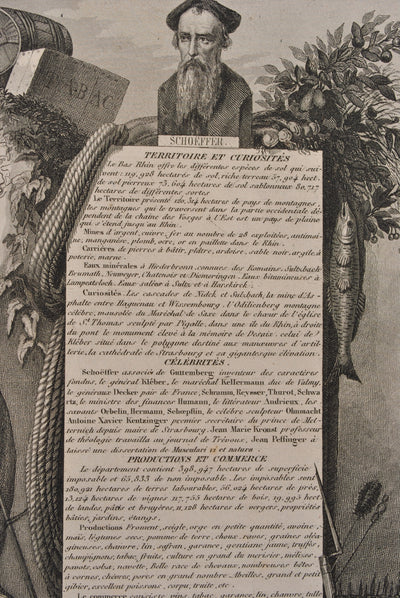 TABAC
SCHOEFFER.
TERRITOIRE ET CURIOSITÉS
Le Bas Rhin offre les différentes espèces de sol qui sui-
vent: 119,928 hectares de sol, riche terreau 57,904 hect.
de sol pierreux 73,604 hectares de sol sablonneux 80,717
hectares de différentes sortes
Le Territoire présente 160,314 hectares de pays de montagnes,
les montagnes qui le traversent dans la partie occidentale dé-
pendent de la chaîne des Vosges à l'Est est un pays de plaine
qui s'étend jusqu'au Rhin.
Mines d'argent, cuivre, fer au nombre de 28 exploitées, antimoi-
ne, manganèse, plomb, ocre, or en paillette dans le Rhin.
Carrières de pierres à bâtir, plâtre, ardoise, sable noir, argile à
poterie, marne.
Eaux minérales à Niederbronn connues des Romains, Sultzbach
Brumath, Neuweyer, Chatenoir et Diemeringen. Eaux bitumineuses à
Lampertsloch. Eaux salées à Sultz et à Harskirck.
Curiosités. Les cascades de Nidek et Sulzbach, la mine d'As-
phalte entre Haguenau et Wissembourg. l'Odilienberg montagne
célèbre, mausolée du Maréchal de Saxe dans le chœur de l'église
de St Thomas sculpté par Pigalle, dans une île du Rhin, à droite
du pont le monument élevé à la mémoire de Desaix, celui de
Kléber situé dans le polygone destiné aux manœuvres d'artil-
lerie, la cathédrale de Strasbourg et sa gigantesque élévation.
CÉLÉBRITÉS.
Schoëffer associés de Guttemberg inventeur des caractères
fondus, le général Kléber, le maréchal Kellermann duc de Valmy,
le généraux Decker pair de France, Schramm, Reysser, Thurot, Schwa
rtz, le ministre des finances Humann, le littérateur Andrieux, les
savants Orbelin, Hermann, Scherpflin, le célèbre sculpteur Ohnmacht
Antoine Xavier Kentzinger premier secrétaire du prince de Met-
ternich depuis maire de Strasbourg. Jean Marie Kroust professeur
de théologie travailla au journal de Trévoux, Jean Peffinger à
laissé une dissertation de Musculari et natura.
PRODUCTIONS ET COMMERCE
Le département contient 398,947 hectares de superficie
imposable et 65,833 de non imposable. Les imposables sont
180,921 hectares de terres labourables, 56,024 hectares de prés,
13,124 hectares de vignes 117,755 hectares de bois, 19,995 hect.
de landes, pâtis et bruyères, 11,128 hectares de vergers, propriétés
bâties, jardins, étangs.
Productions Froment, seigle, orge en petite quantité, avoine,
maïs, légumes secs, pommes de terre, choux, raves, graines oléa-
gineuses, chanvre, lin, saffran, garance, gentiane jaune, truffes,
champignons, tabac, fruits, culture en grand du merisier, mélisse,
pavots, colsa, navette, Belle race de chevaux, nombreuses bêtes
à cornes, chèvres, porcs en grand nombre. Abeilles, grand et petit
gibier, excellent poissons, carpe, truite, etc.
Le commerce consiste vins, tabac, garance, lin, chanvre, huile